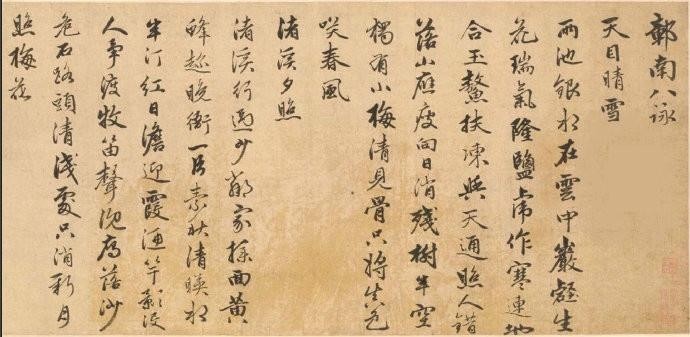 鄣南八詠
天目晴雪
兩池銀水在雲中巖壑生
花瑞氣隆鹽虎作寒連地
合玉鰲扶凍與天通照人錯
落山應瘦向日消殘樹半空
獨有小梅清見骨只將真色
咲春風
渚溪夕照
渚溪行過少鄰家撲面黃
蜂趂晚衙一片素秋清映水
半汀紅日澹迎霞竿影沒
人爭渡牧笛聲沉鴈落沙
危石路頭清淺處只消新月
照梅花